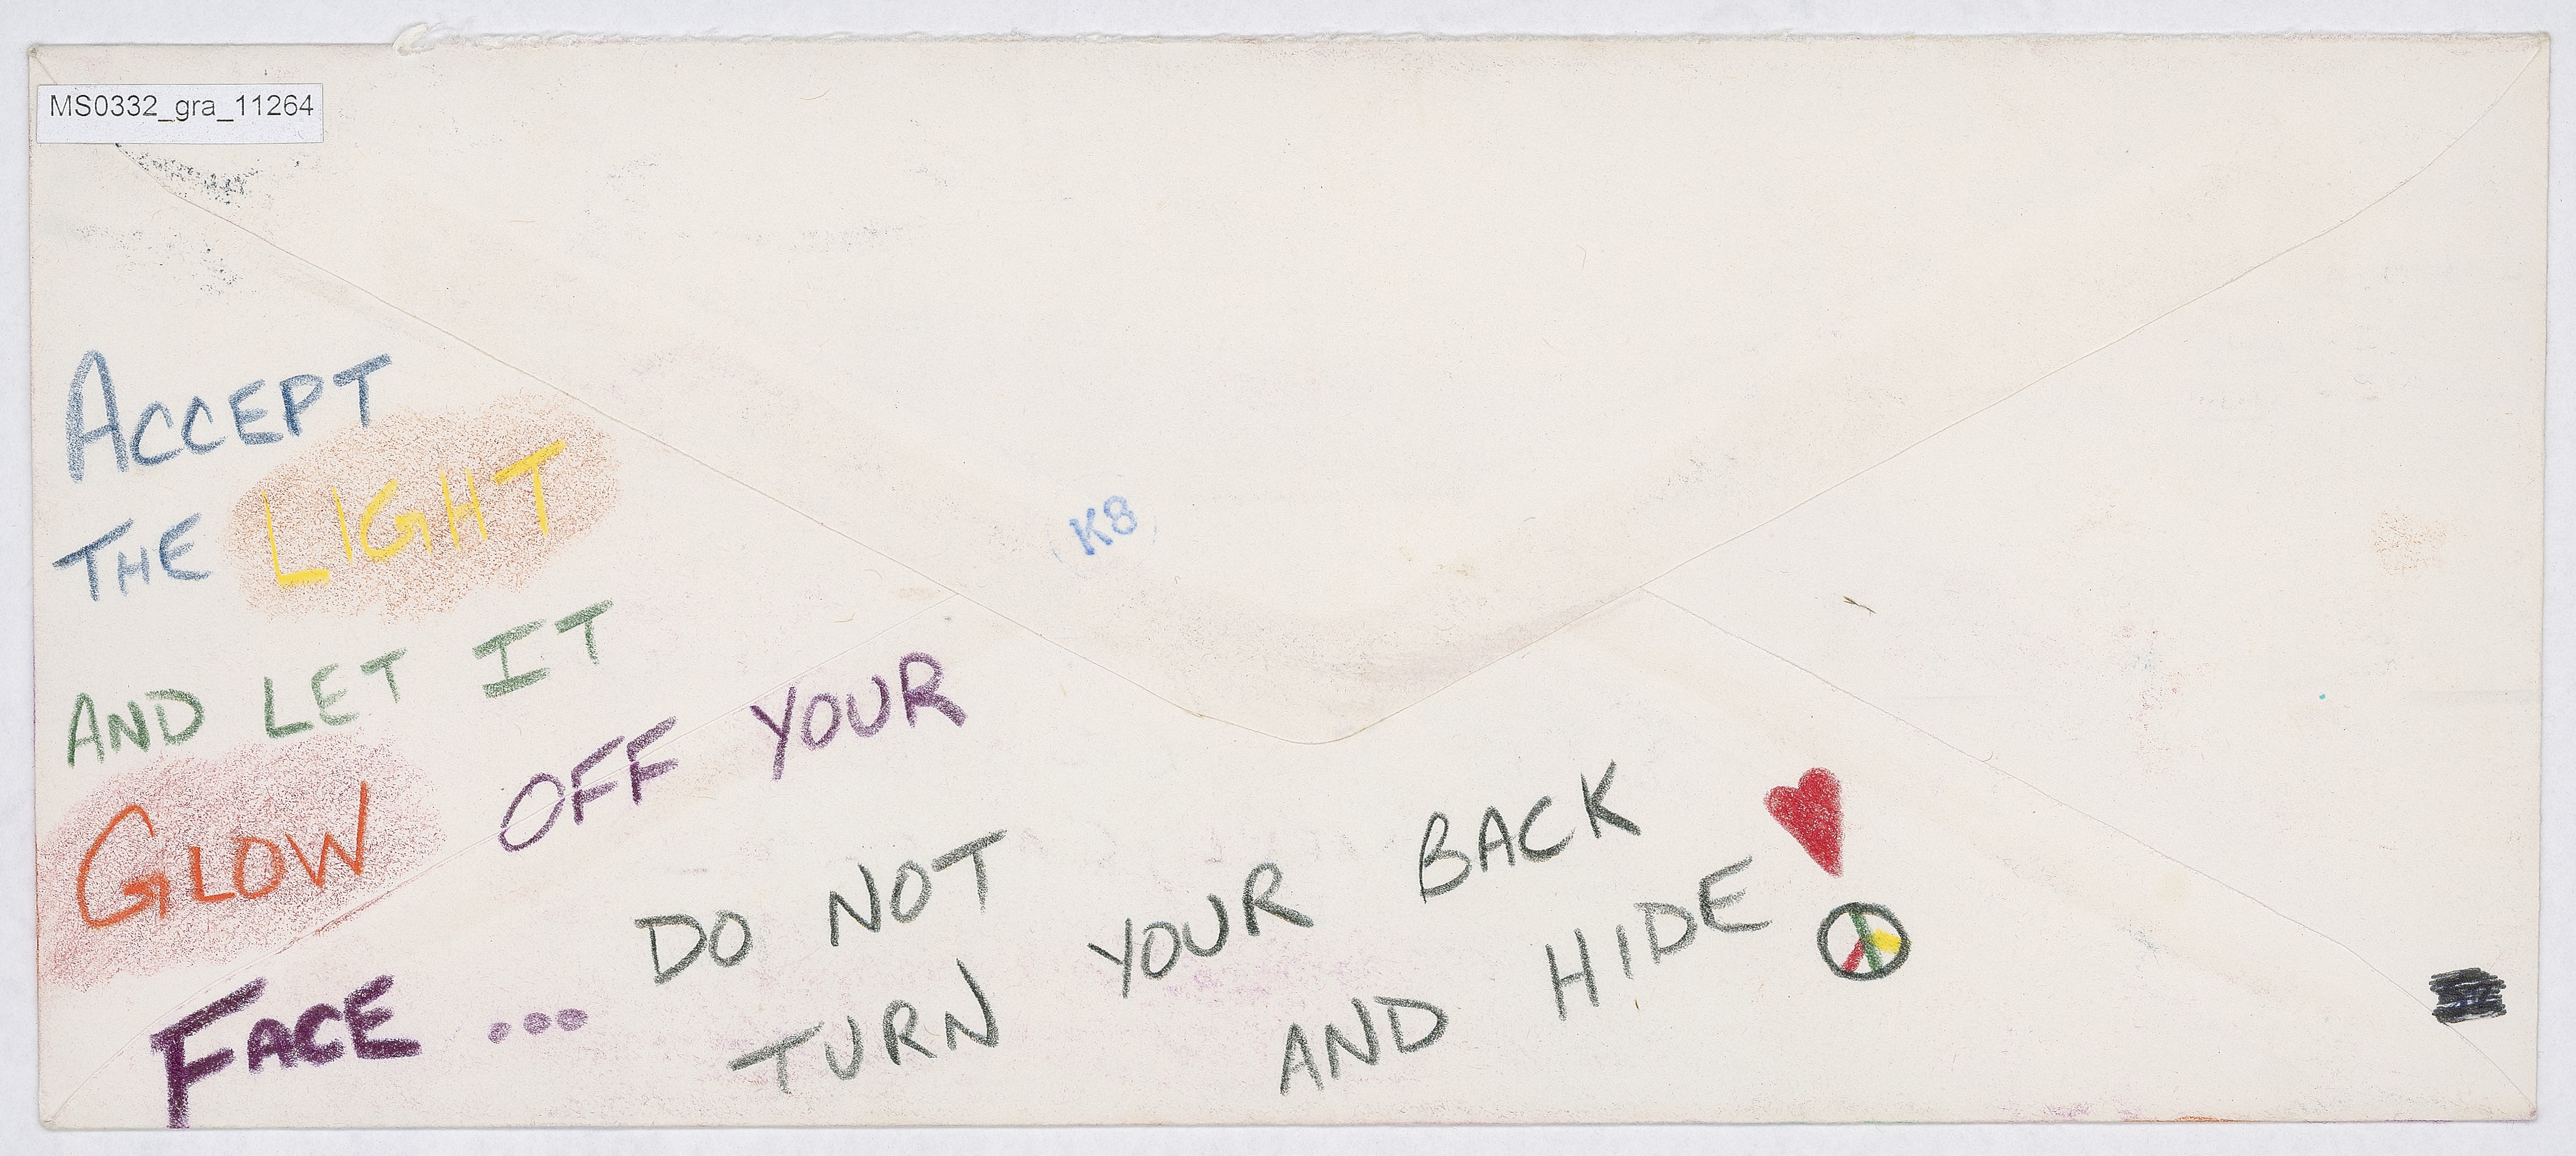 MS0332_gra_11264
ACCEPT
THE LIGHT
AND LET IT
GLOW OFF YOUR
FACE ... DO NOT
TURN YOUR BACK
AND HIDE
K8